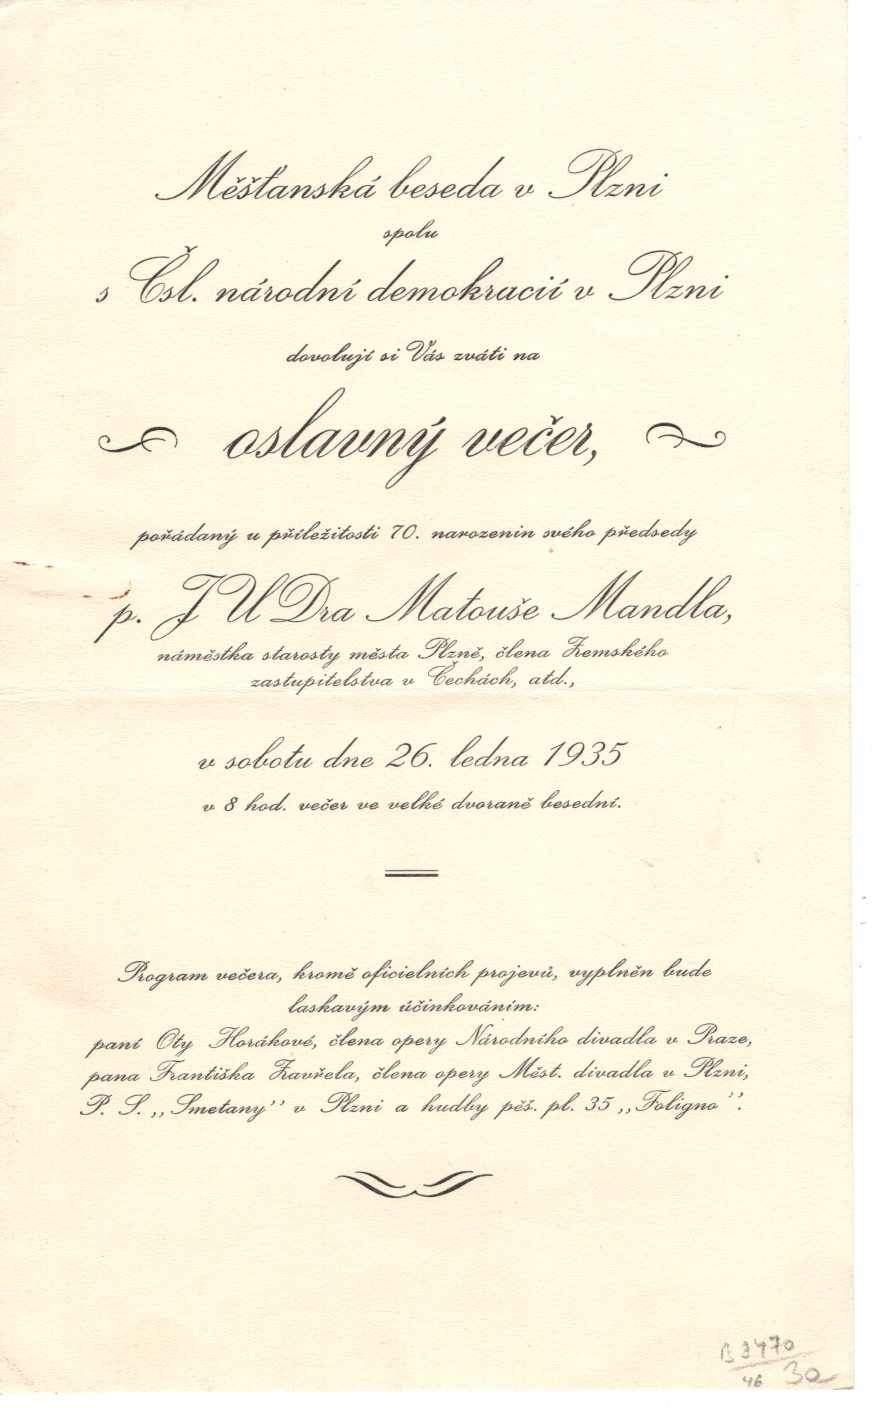 Měšťanská beseda v Plzni
spolu
s Čsl. národní demokracií v Plzni
dovolují si Vás zváti na
oslavný večer,
pořádaný u příležitosti 70. narozenin svého předsedy
p. JUDra Matouše Mandla,
náměstka starosty města Plzně, člena Zemského
zastupitelstva v Čechách, atd.,
v sobotu dne 26. ledna 1935
v 8 hod. večer ve velké dvoraně besední.
Program večera, kromě oficielních projevů, vyplněn bude
laskavým účinkováním:
paní Oty Horákové, člena opery Národního divadla v Praze,
pana Františka Zavřela, člena opery Měst. divadla v Plzni,
P. S. „Smetany” v Plzni a hudby pěš. pl. 35 „Foligno”.
B 3470
46 30